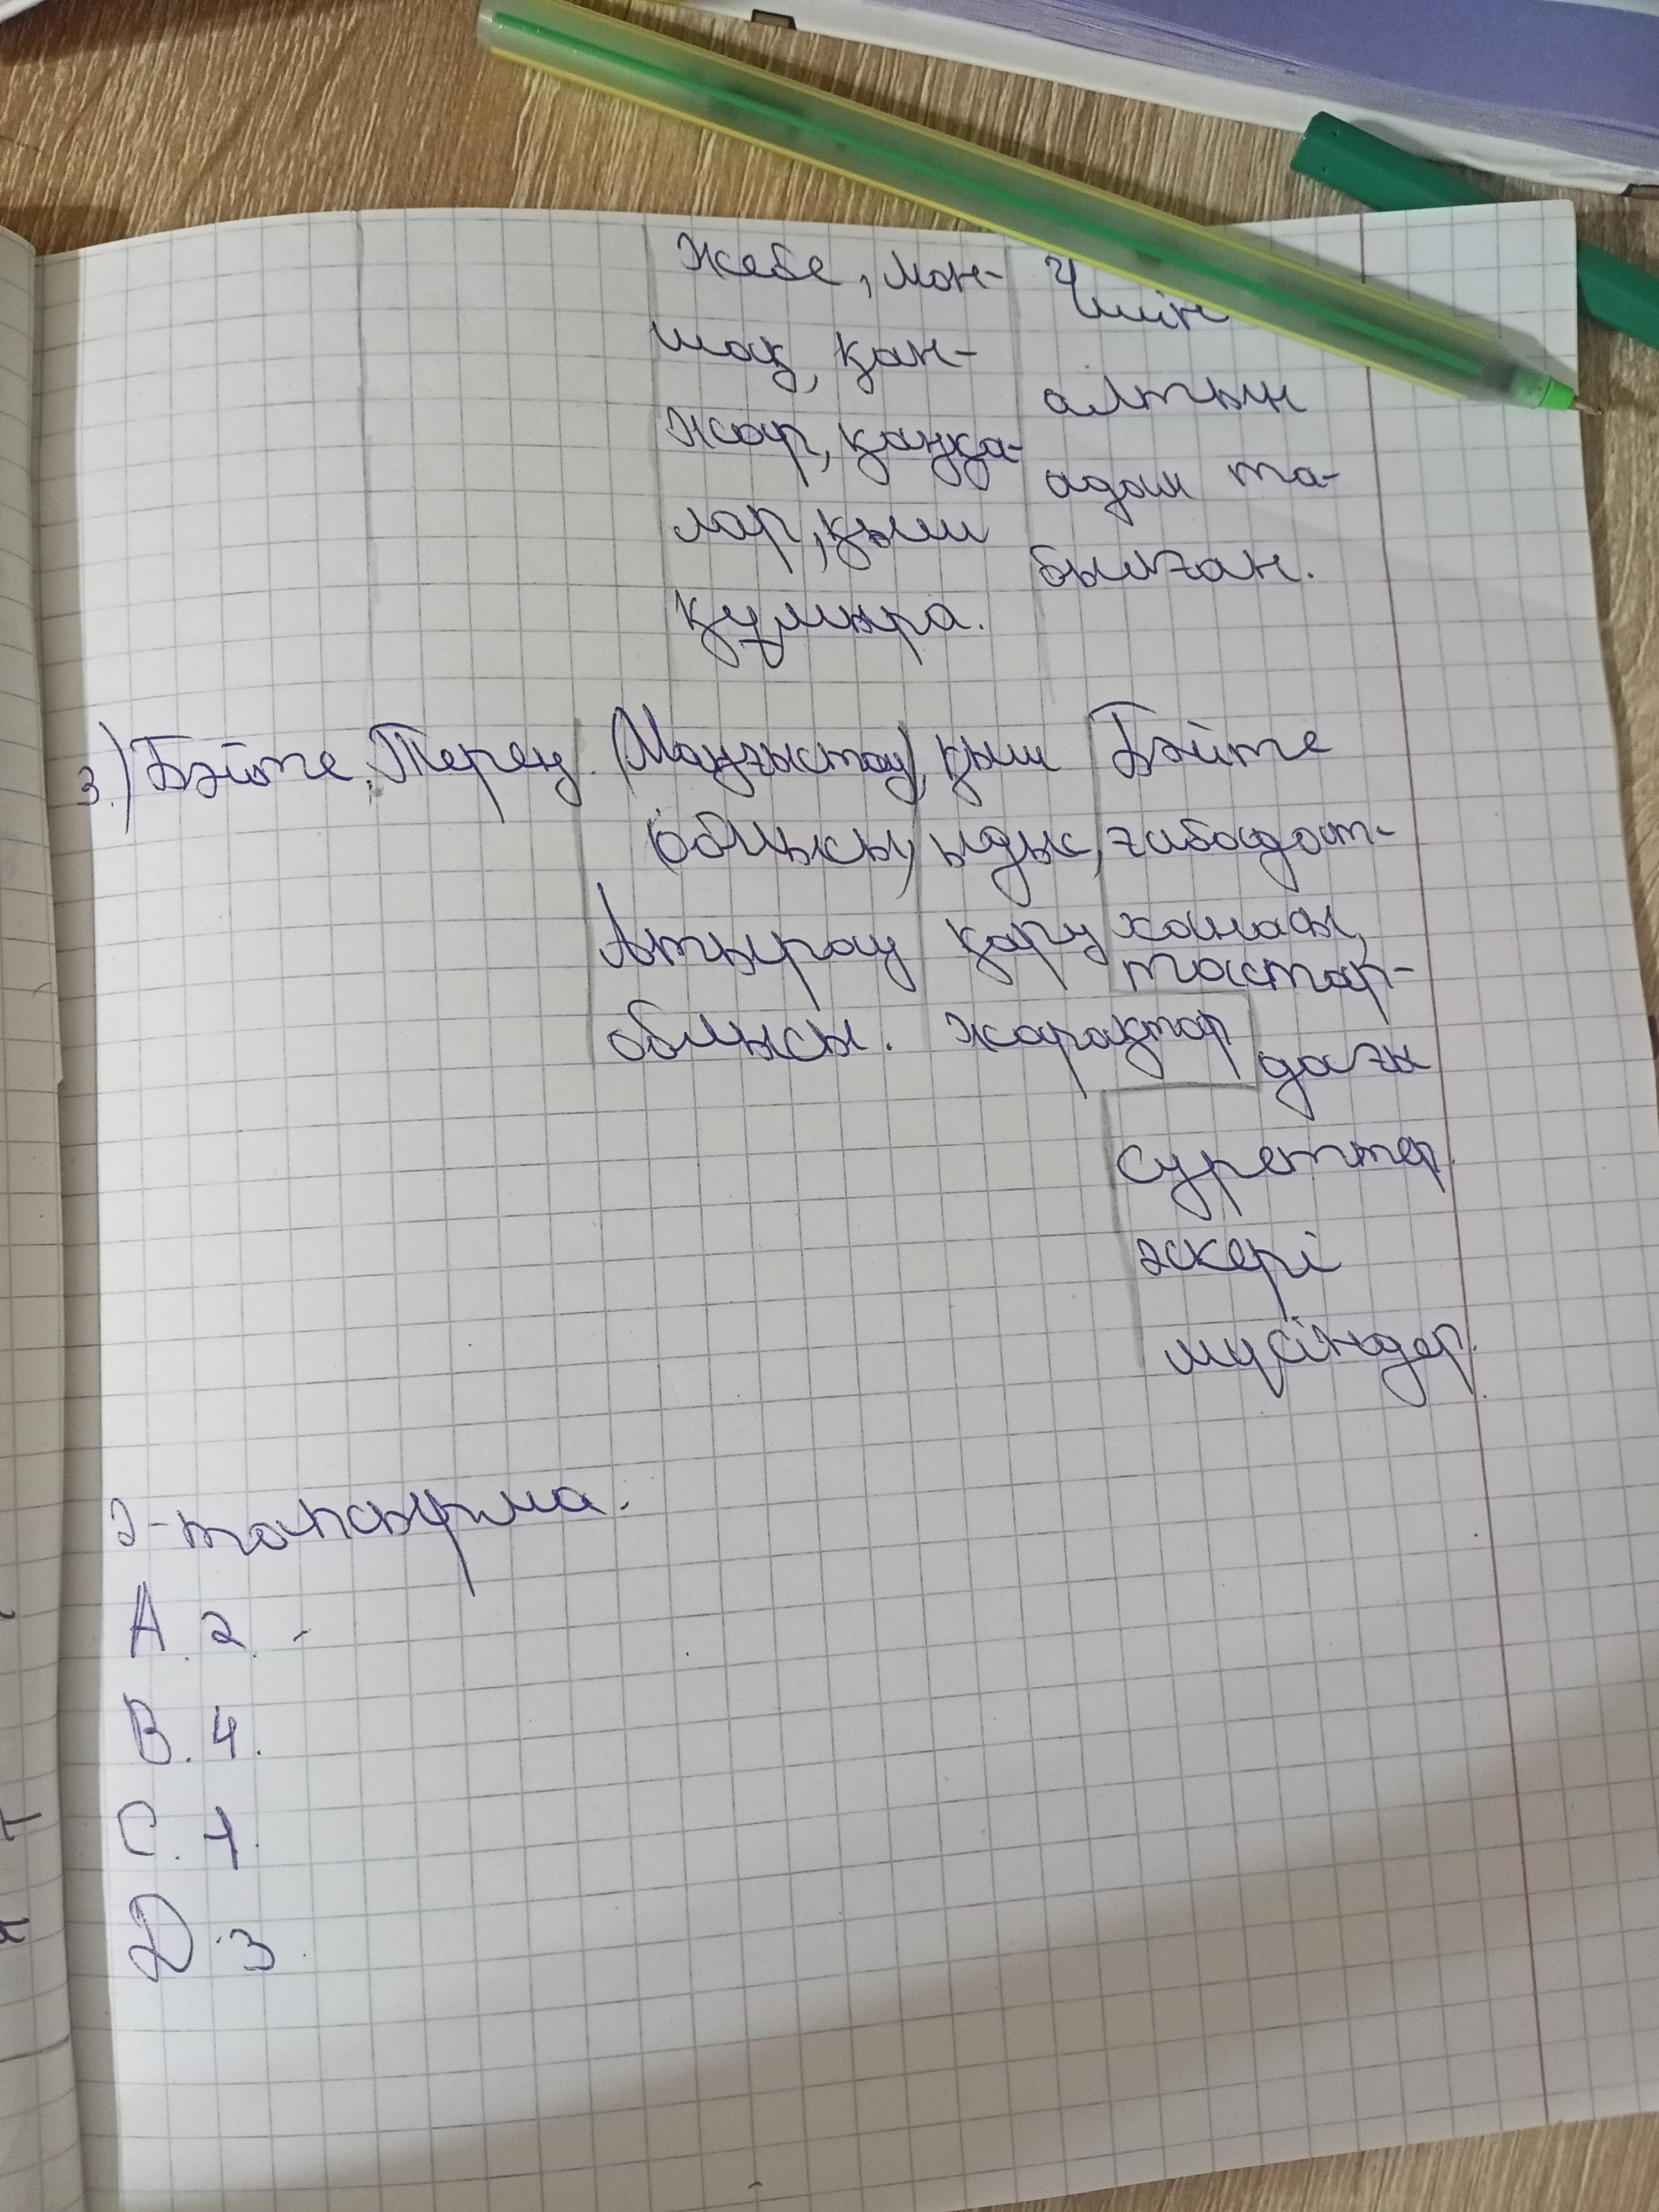 жебе, мон-
шақ, қан-
жар, қаңқа-
лар, қыш
құмыра.
алтын
адам та-
былған.
3.) Бәйте, Терең. (Маңғыстау), қыш Бәйте
(облысы) ыдыс, ғибадат-
Атырау қару ханасы,
тастар-
облысы. жарақтар
дағы
суреттер.
әскери
мүсіндер.
2-тапсырма.
A. 2. -
B. 4.
C. 1.
D. 3.